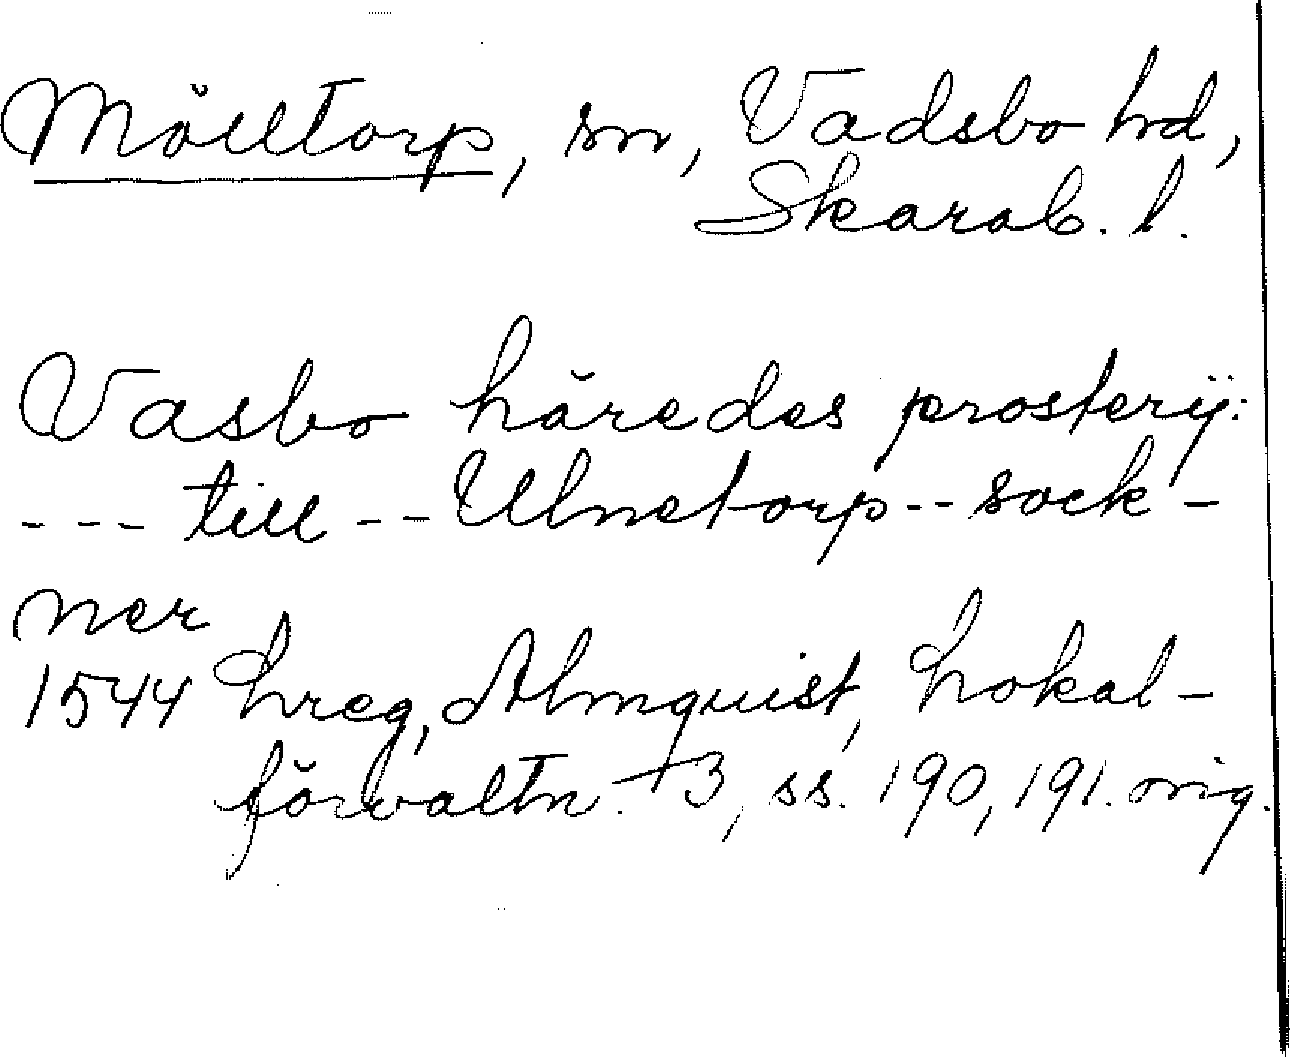 Mölltorp, sn, Vadsbo hd,
Skarab. l.
Vasbo häredes prosterij:
--- till -- Ulnetorp -- sock-
ner
1544 Lreg, Almquist, Lokal-
förvaltn. 3, ss. 190, 191. orig.